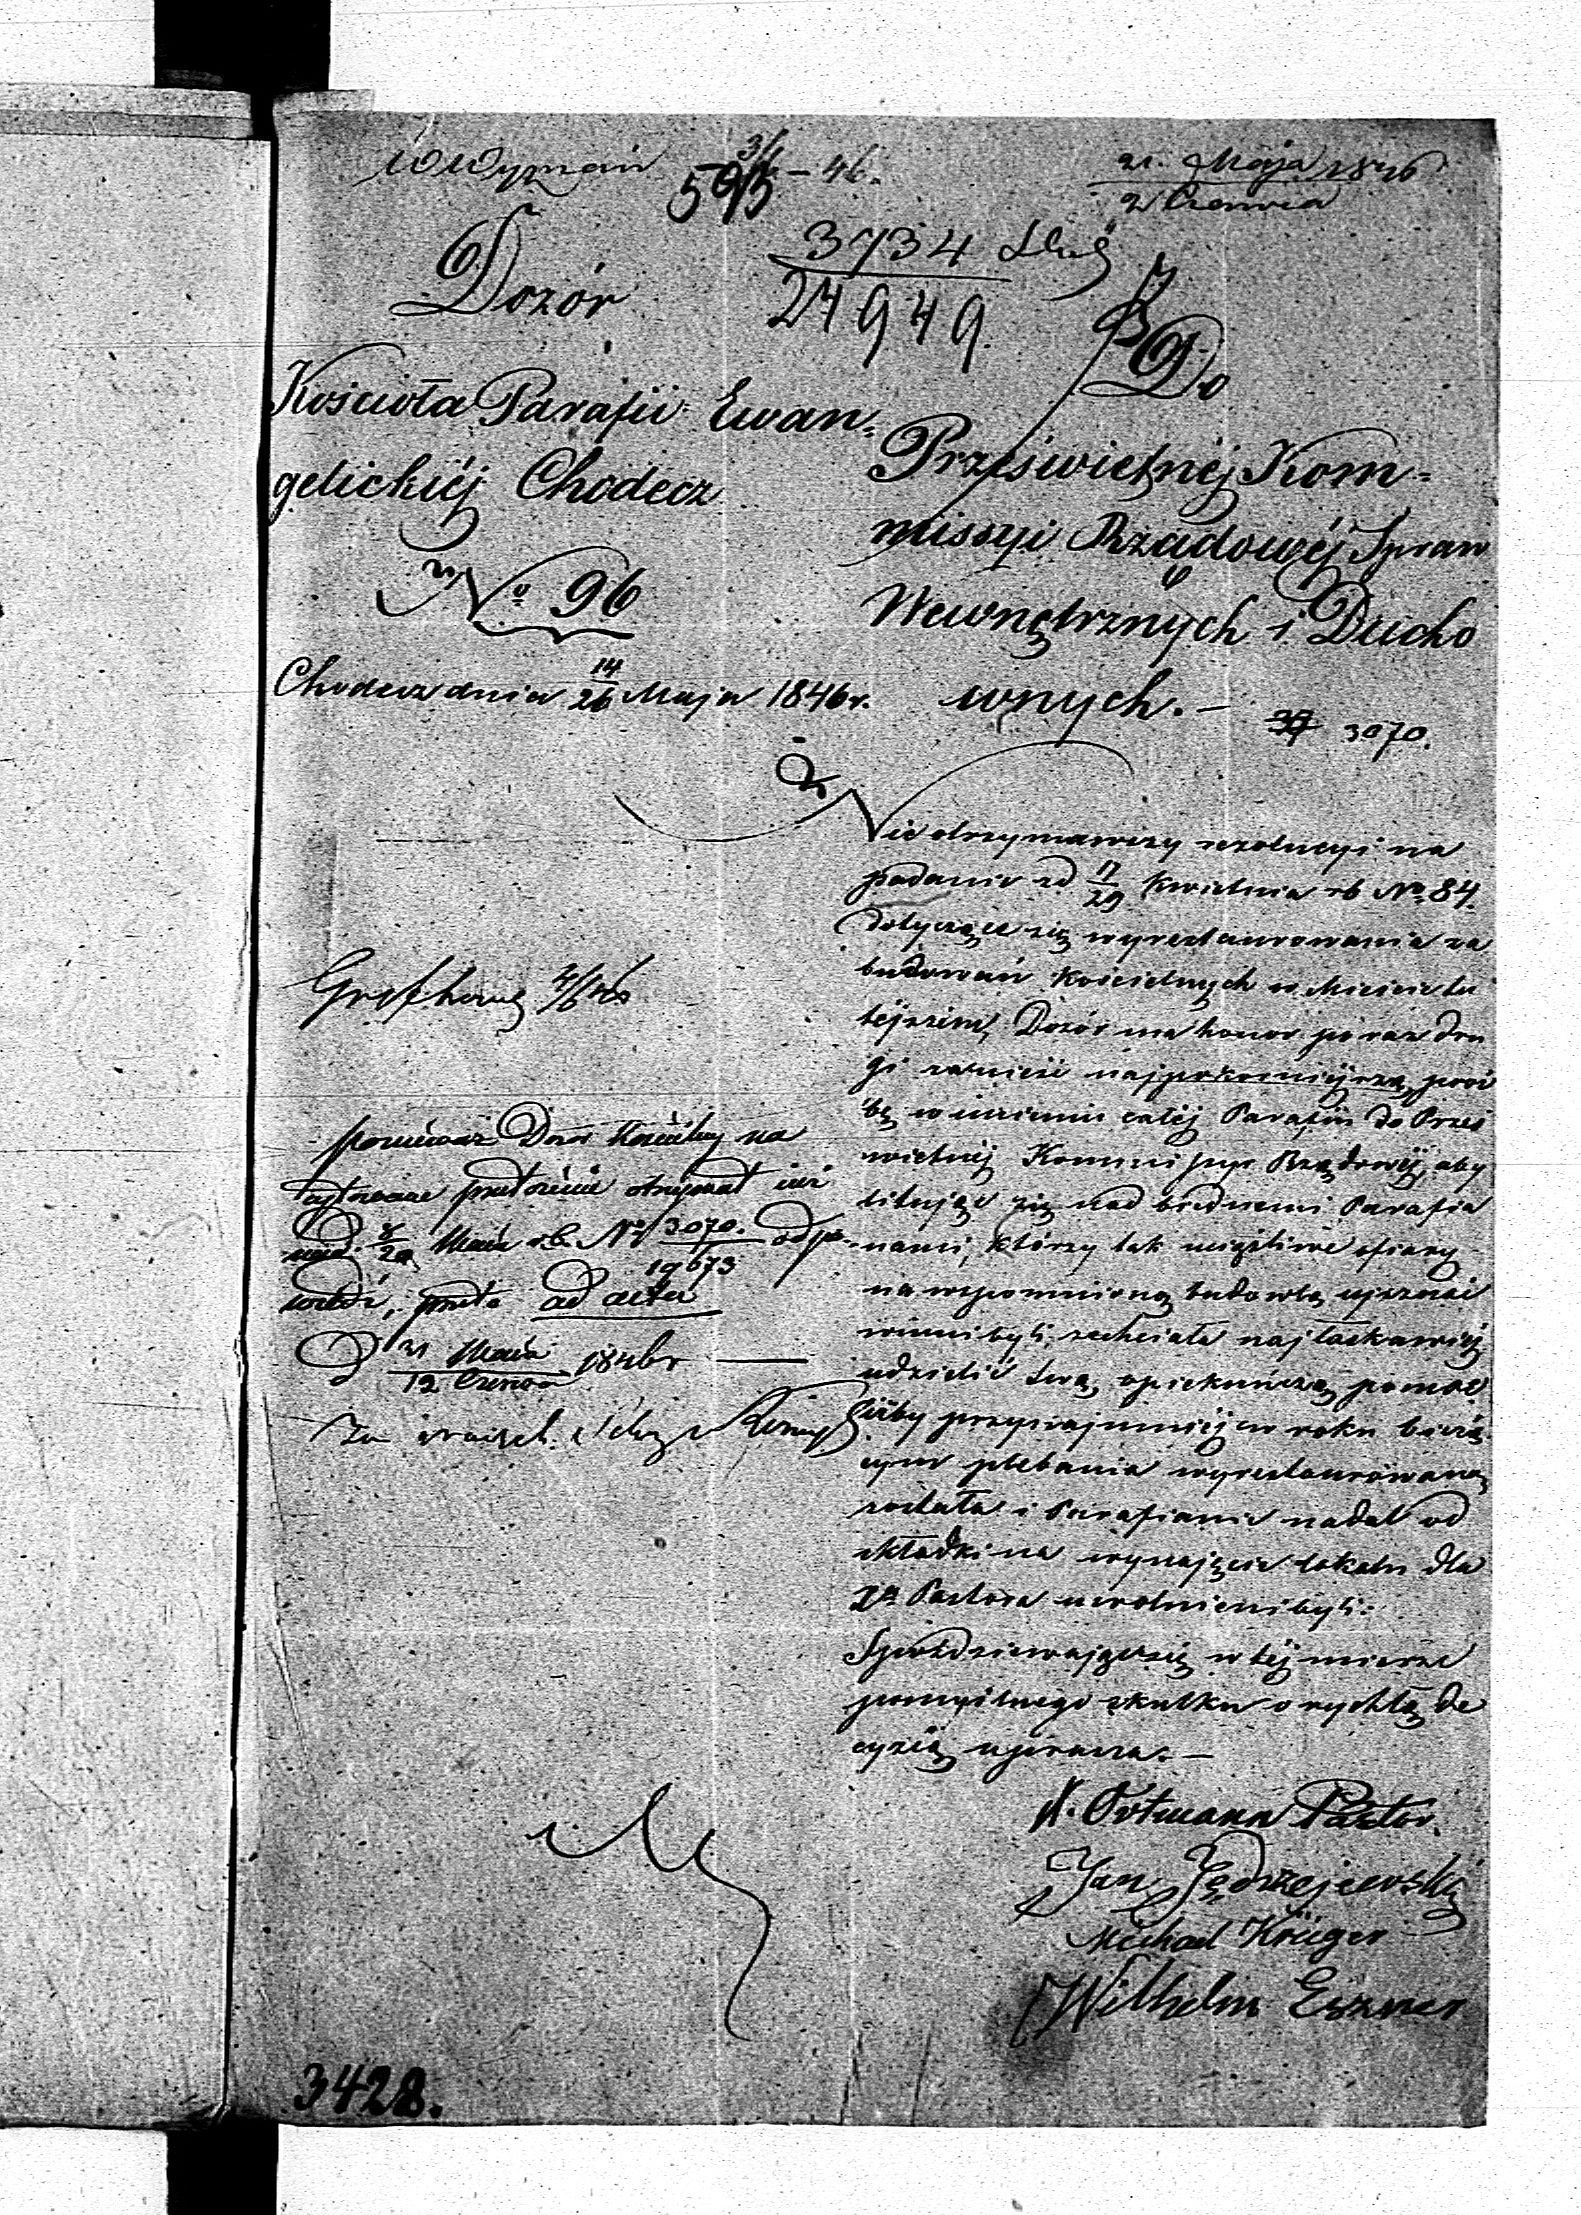 W Wyznań
593 3/6 – 46.
21. Maja 1846
2 Czerwca
3734
24949.
Dozór
Kościoła Parafii Ewan-
gelickiéj Chodecz
No 96
Chodecz dnia 14/26 Maja 1846 r.
Do
Prześwietnéj Kom-
missyi Rządowéj Spraw
Wewnętrznych i Ducho
wnych. –
3070.
Nie otrzymawszy rezolucyi na
podanie od 17/29 Kwietnia rb No. 84.
dotyczące się wyrestaurowania za
budowań Kościelnych w Mieście tu
téjszém, Dozór ma honor po raz dru
gi zanieść najpokorniejszą proś
bę w imieniu całéj Parafii do Prześ
wietnéj Kommissyi Rządowéj, aby
litując się nad biednemi Parafia
nami, którzy tak uciążliwe ofiary
na wspomnioną budowlę
winni byli, zechciała najłaskawiéj
udzielić swą opiekuńczą pomoc
iżby przynajmniéj w roku bieżą
cym plebania wyrestaurowaną
została i Parafianie nadal od
składki na wynajęcie lokalu dla
Pastora uwolnieni byli.
Spodziewając się w téj mierze
pomyślnego skutku o rychłą de
cyzią uprasza. –
W. Ortmann Pastor.
Jan Jędrzejewski
Michael Krüger
Wilhelm
4/6 46
ponieważ Dozór Kościelny na
przełożenie otrzymał już
pod d. 8/20 Maia r.b. No 3070/19673 odpo-
wiedź, przeto ad acta
D 31 Maia / 12 Czerwca 1846 r
3428.